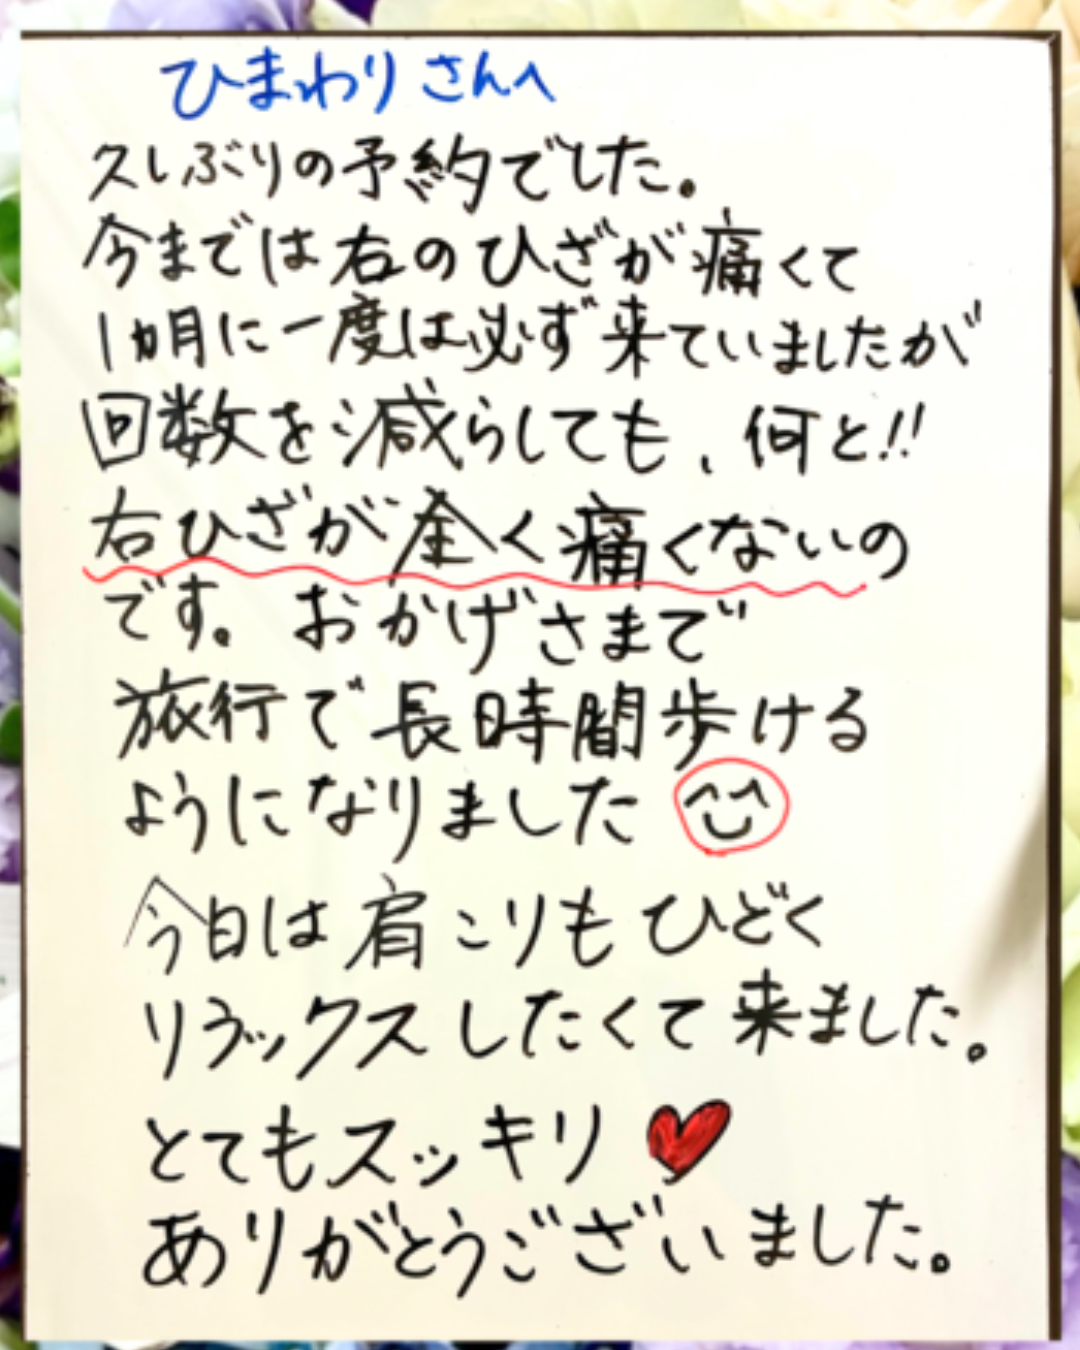 ひまわりさんへ
久しぶりの予約でした。
今までは右のひざが痛くて
1ヵ月に一度は必ず来ていましたが
回数を減らしても、何と!!
右ひざが全く痛くないの
です。おかげさまで
旅行で長時間歩ける
ようになりました
今日は肩こりもひどく
リラックスしたくて来ました。
とてもスッキリ
ありがとうございました。